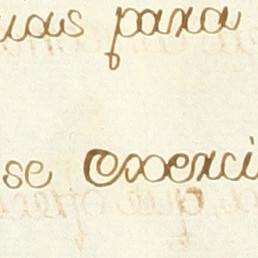 uas para
se exerci